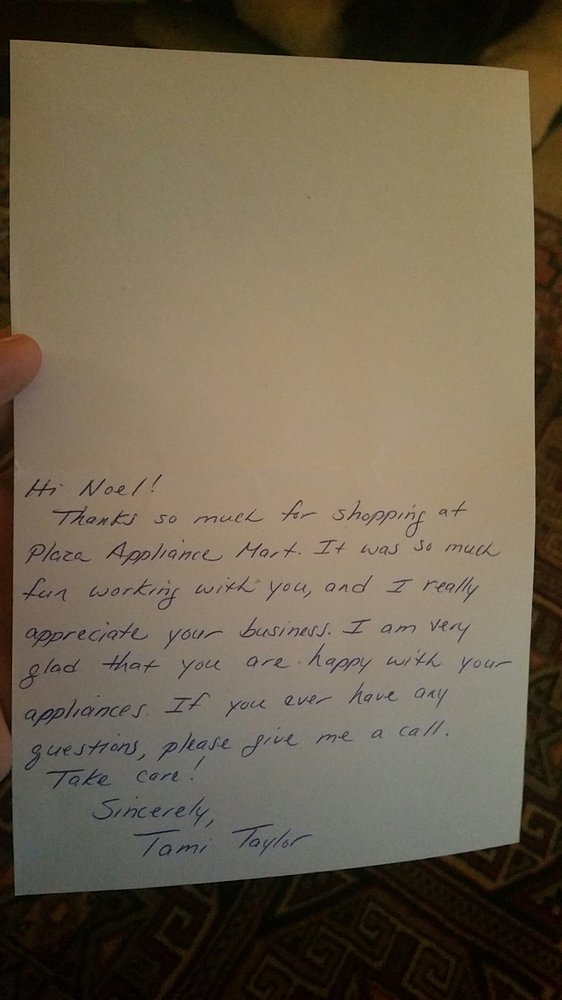 Hi Noel!
Thanks so much for shopping at
Plaza Appliance Mart. It was so much
fun working with you, and I really
appreciate your business. I am very
glad that you are happy with your
appliances. If you ever have any
questions, please give me a call.
Take care!
Sincerely,
Tami Taylor